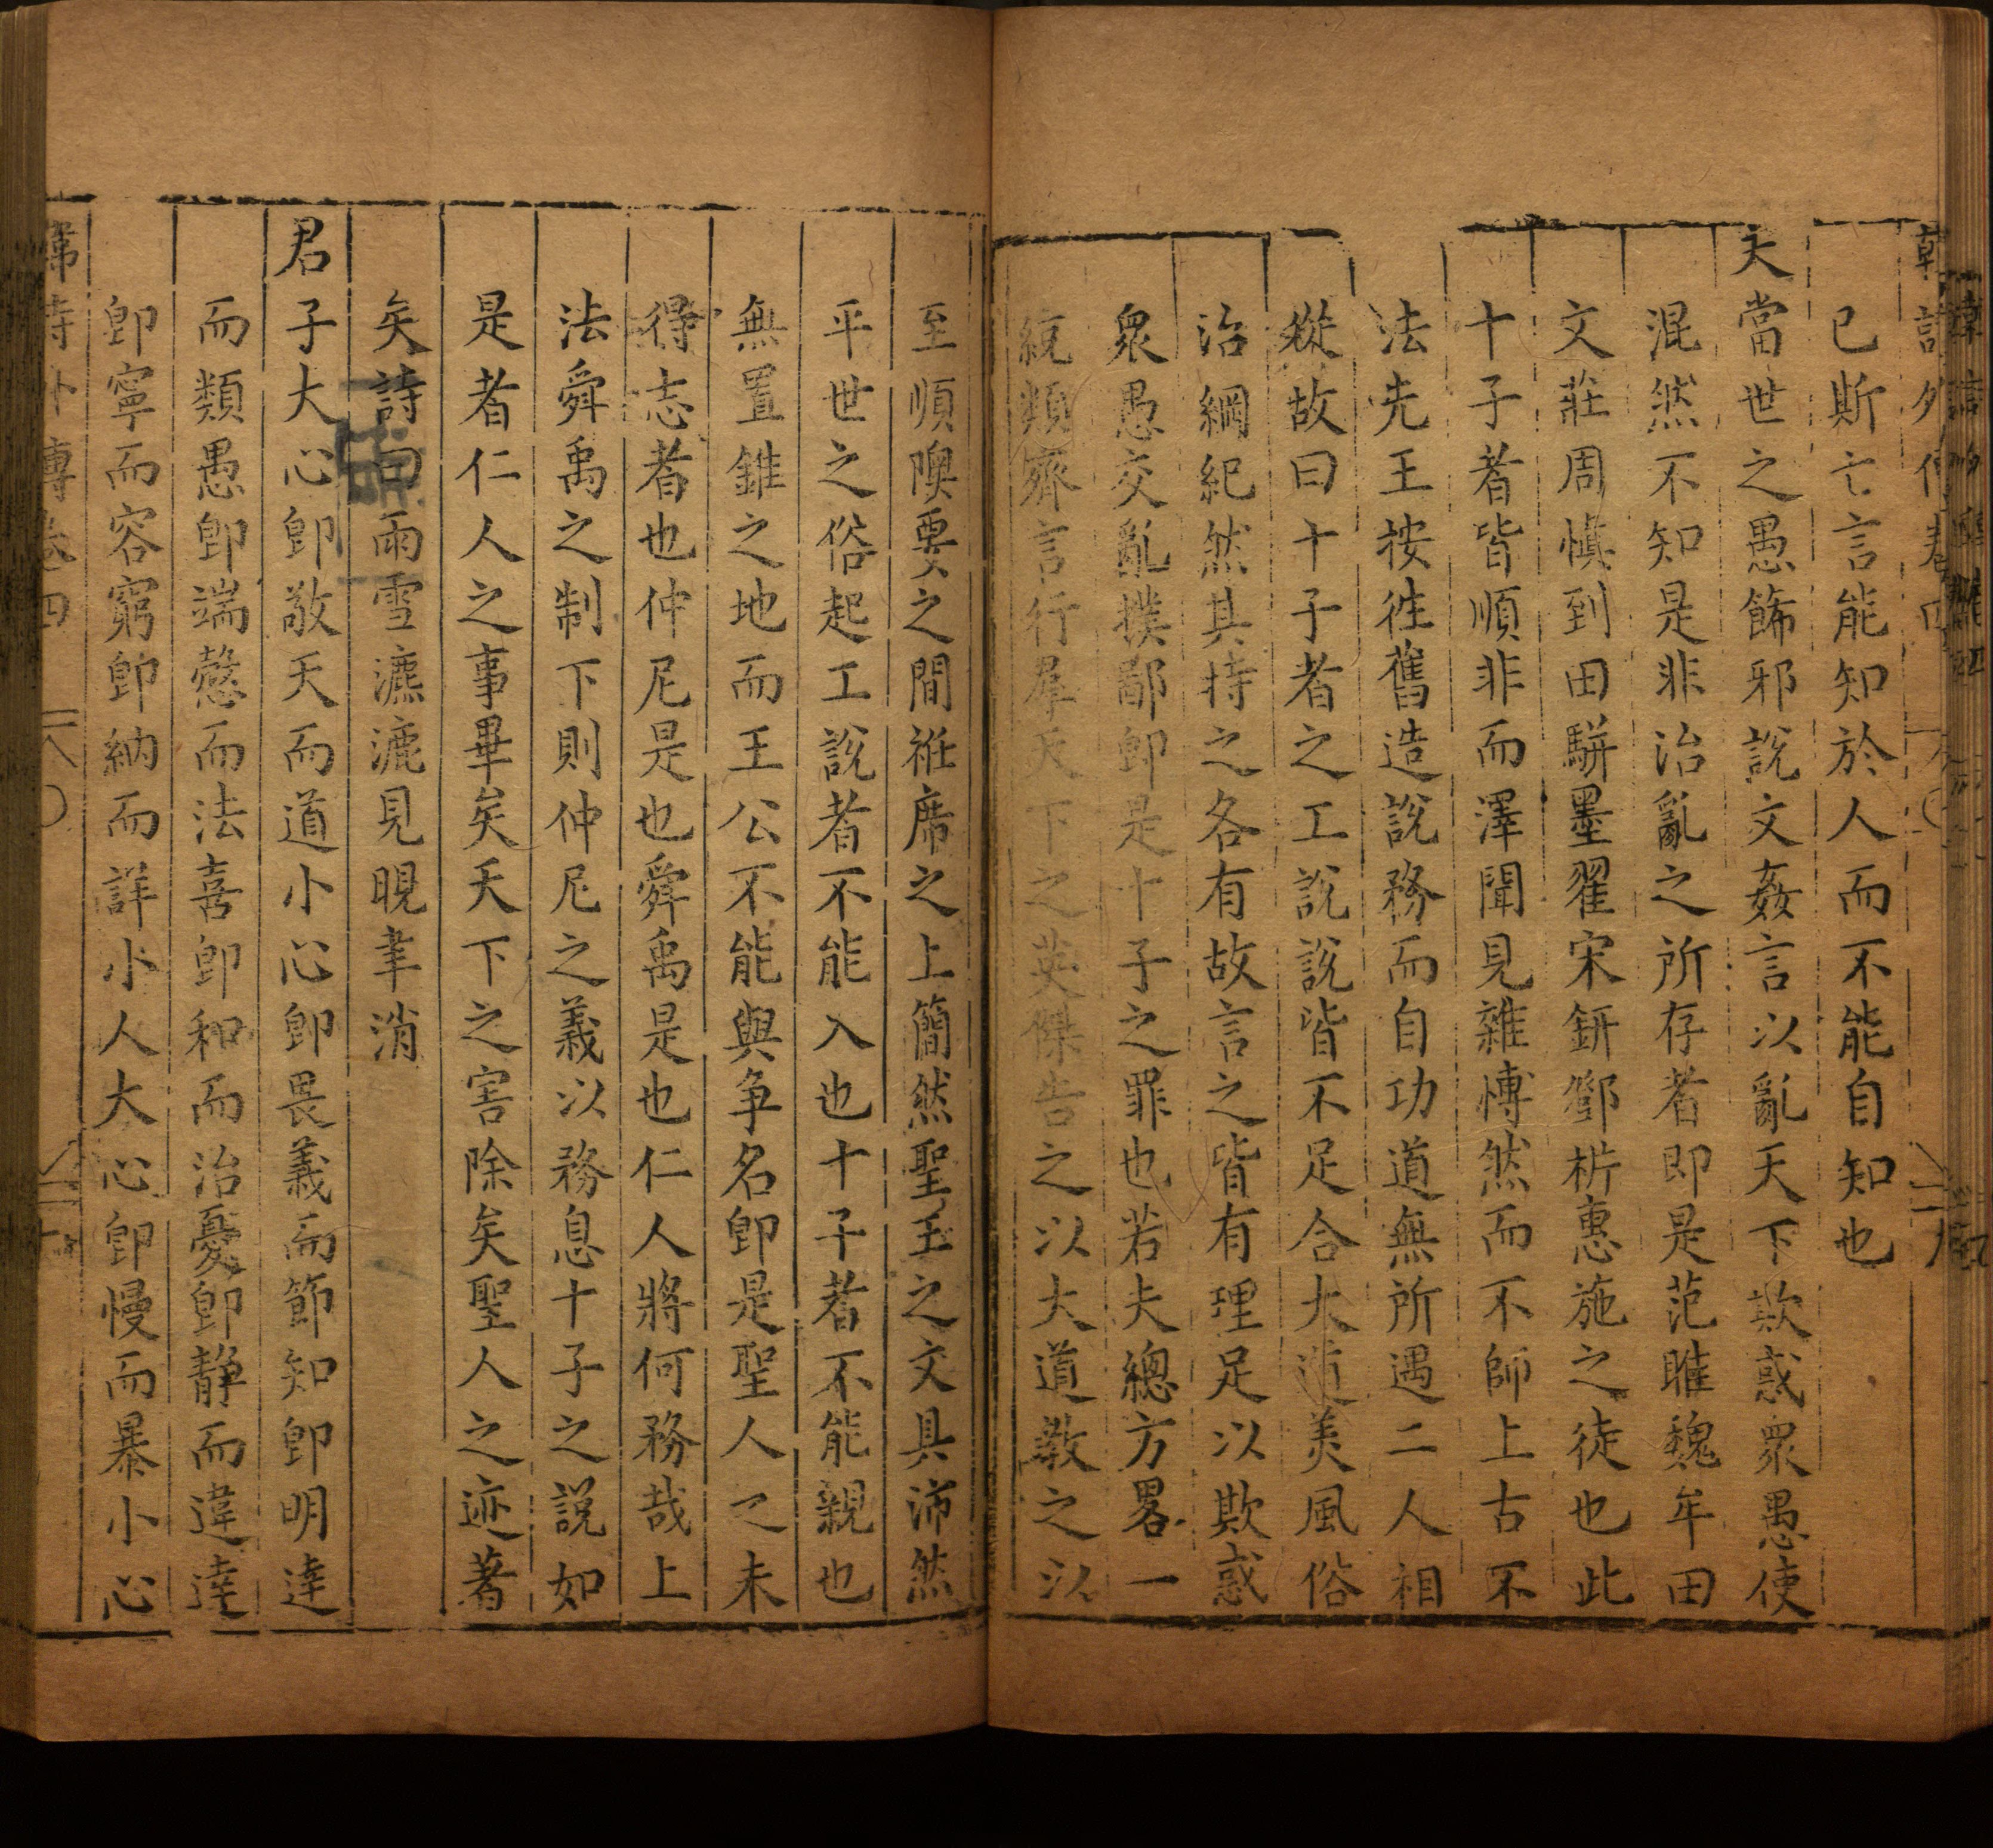 已斯亡言能知於人而不能自知也
夫當世之愚飾邪說文姦言以亂天下欺惑衆愚使
混然不知是非治亂之所存者即是范雎魏牟田
文莊周愼到田駢墨翟宋鈃鄧析惠施之徒也此
十子者皆順非而澤聞見雜博然而不師上古不
法先王按徃舊造說務而自功道無所遇二人相
從故曰十子者之工說說皆不足合大道美風俗
治綱紀然其持之各有故言之皆有理足以欺惑
衆愚交亂樸鄙卽是十子之罪也若夫總方畧一
統類齊言行羣天下之英傑告之以大道敎之以
至順隩要之間袵席之上簡然聖王之文具沛然
平世之俗起工說者不能入也十子者不能親也
無置錐之地而王公不能與争名卽是聖人之未
得志者也仲尼是也舜禹是也仁人將何務哉上
法舜禹之制下則仲尼之義以務息十子之說如
是者仁人之事畢矣天下之害除矣聖人之迹著
矣詩曰雨雪瀌瀌見晛聿消
君子大心卽敬天而道小心卽畏義而節知卽明達
而類愚卽端慤而法喜卽和而治憂卽静而違達
卽寧而容窮卽納而詳小人大心卽慢而暴小心
韓詩外傳卷四